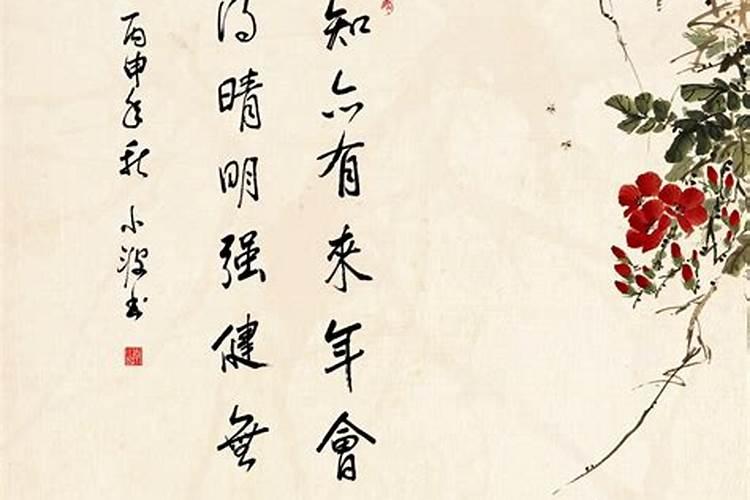 知亦有來年會
得晴明强健無
丙申年秋 小波书